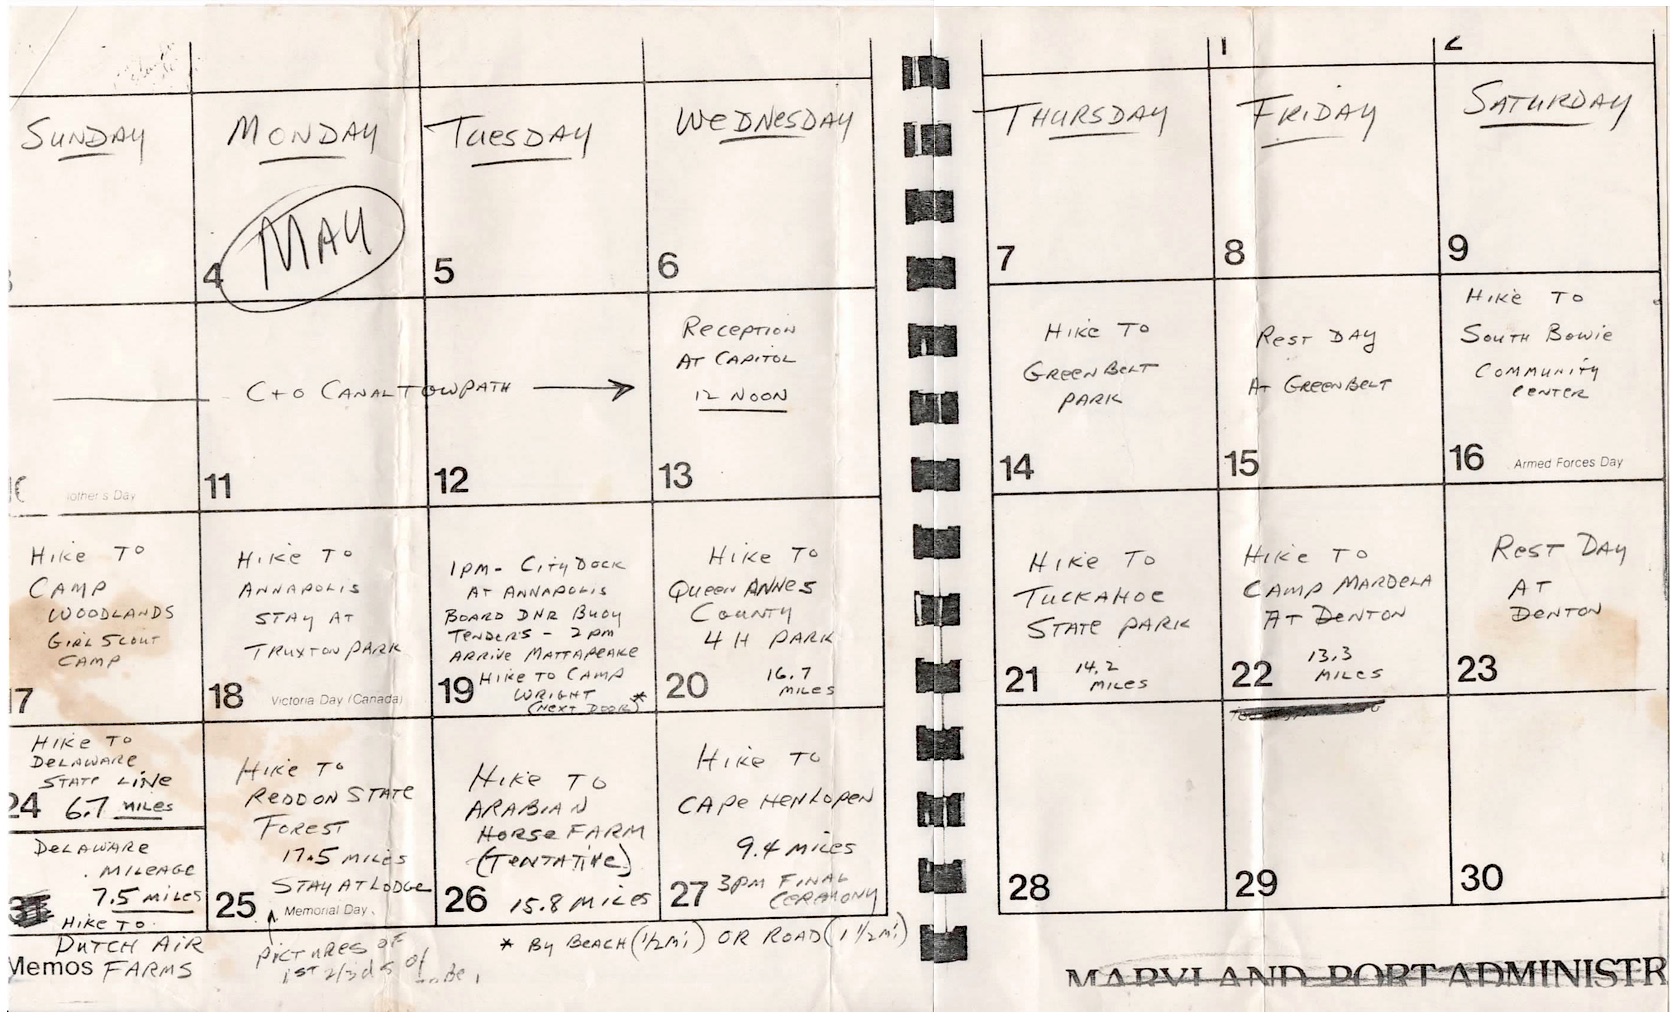 1
2
SUNDAY
MONDAY
TUESDAY
WEDNESDAY
THURSDAY
FRIDAY
SATURDAY
MAY
4
5
6
7
8
9
C+O CANAL TOWPATH
RECEPTION
AT CAPITOL
12 NOON
HIKE TO
GREENBELT
PARK
REST DAY
AT GREENBELT
HIKE TO
SOUTH BOWIE
COMMUNITY
CENTER
other's Day
11
12
13
14
15
16 Armed Forces Day
HIKE TO
CAMP
WOODLANDS
GIRL SCOUT
CAMP
17
HIKE TO
ANNAPOLIS
STAY AT
TRUXTON PARK
18 Victoria Day (Canada)
1PM - CITY DOCK
AT ANNAPOLIS
BOARD DNR BUOY
TENDERS - 2PM
ARRIVE MATTAPEAKE
HIKE TO CAMP
19 WRIGHT
(NEXT DOOR) *
HIKE TO
QUEEN ANNES
COUNTY
4 H PARK
20 16.7
MILES
HIKE TO
TUCKAHOE
STATE PARK
21 14.2
MILES
HIKE TO
CAMP MARDELA
AT DENTON
22 13.3
MILES
REST DAY
AT
DENTON
23
HIKE TO
DELAWARE
STATE LINE
24 6.7 MILES
DELAWARE
MILEAGE
7.5 MILES
HIKE TO
DUTCH AIR
FARMS
HIKE TO
REDDON STATE
FOREST
17.5 MILES
STAY AT LODGE
25 Memorial Day
HIKE TO
ARABIAN
HORSE FARM
(TENTATIVE)
26 15.8 MILES
HIKE TO
CAPE HENLOPEN
9.4 MILES
27 3PM FINAL
CEREMONY
28
29
30
Memos
PICTURES OF
1ST 2/3DS OF
* BY BEACH (1/2 Mi) OR ROAD (1 1/2 Mi)
MARYLAND PORT ADMINISTR